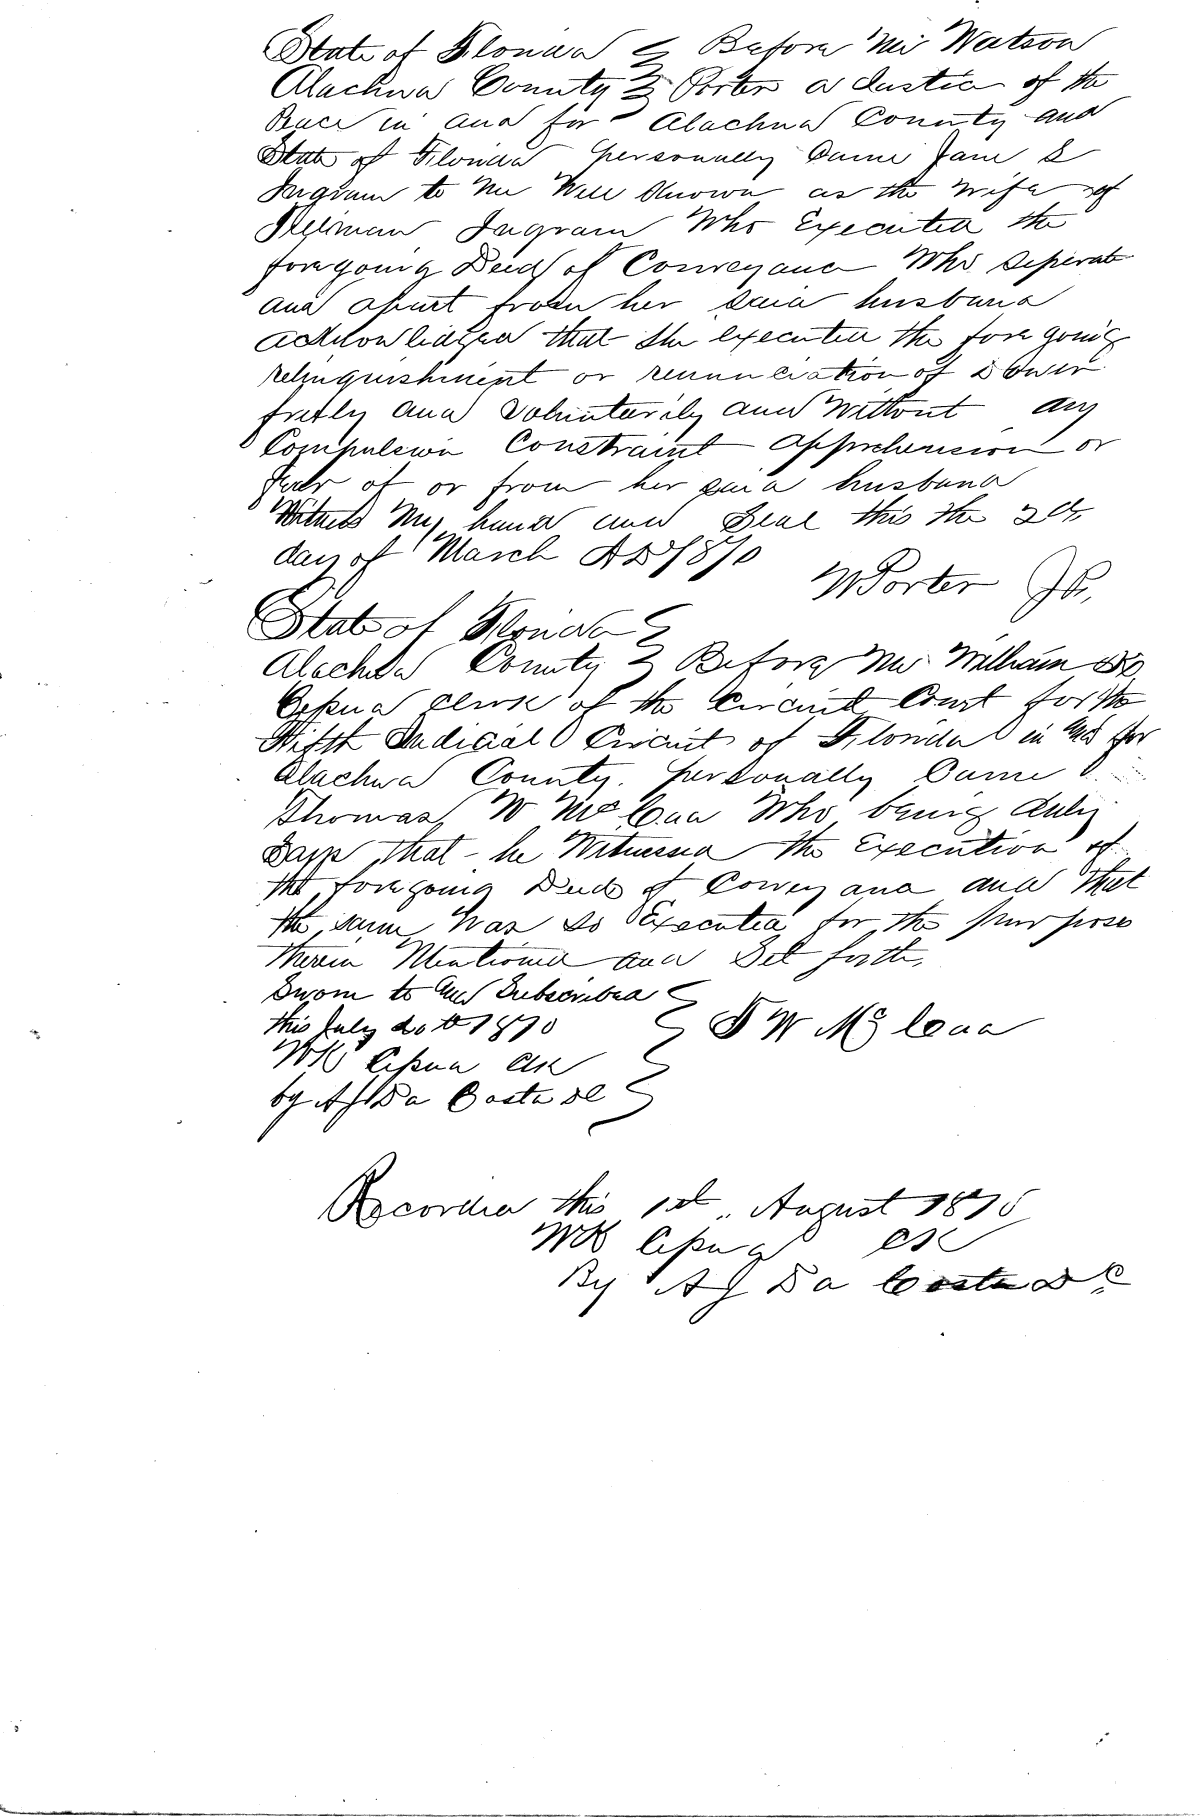 State of Florida } Before Me Watson
Alachua County } Porter a Justice of the
Peace in and for Alachua County and
State of Florida personally Came Jane S
Ingram to Me Well Known as the Wife of
Ingram Who Executed the
foregoing Deed of Conveyance Who Seperate
and apart from her said husband
acknowledged that she executed the foregoing
relinquishment or renunciation of Dower
freely and Voluntarily and Without any
Compulsion Constraint apprehension or
fear of or from her said husband
Witness My hand and Seal this the
day of March AD 1870
W Porter JP.
State of Florida }
Alachua County } Before Me William K
Cessna Clerk of the Circuit Court for the
Fifth Judicial Circuit of Florida in and for
Alachua County. personally Came
Thomas W McCaa Who being duly
Says that he Witnessed the Execution of
the foregoing Deed of Conveyance and that
the same was so Executed for the purposes
therein Mentioned and Set forth.
Sworn to and Subscribed }
this July 20th 1870 } T W McCaa
WK Cessna Clk }
by A J Da Costa DC }
Recorded this 1st August 1870
WK Cessna Clk
By A J Da Costa DC